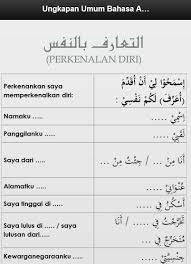 Ungkapan Umum Bahasa A...
التعارف بالنفس
(PERKENALAN DIRI)
Perkenankan saya
memperkenalkan diri:
اِسْمَحُوْا لِيْ أَنْ أُقَدِّمَ
(أُعَرِّفَ) لَكُمْ نَفْسِيْ :
Namaku .....
اِسْمِيْ .....
Panggilanku .....
Saya dari .....
أَنَا مِنْ ... / جِئْتُ مِنْ ...
Alamatku .....
عُنْوَانِيْ .....
Saya tinggal di .....
أَسْكُنُ فِيْ .....
Saya lulus di ..... / saya
lulusan dari.....
تَخَرَّجْتُ فِيْ ... / أَنَا
مُتَخَرِّجٌ فِيْ ...
Kewarganegaraanku .....
جِنْسِيَّتِيْ .....